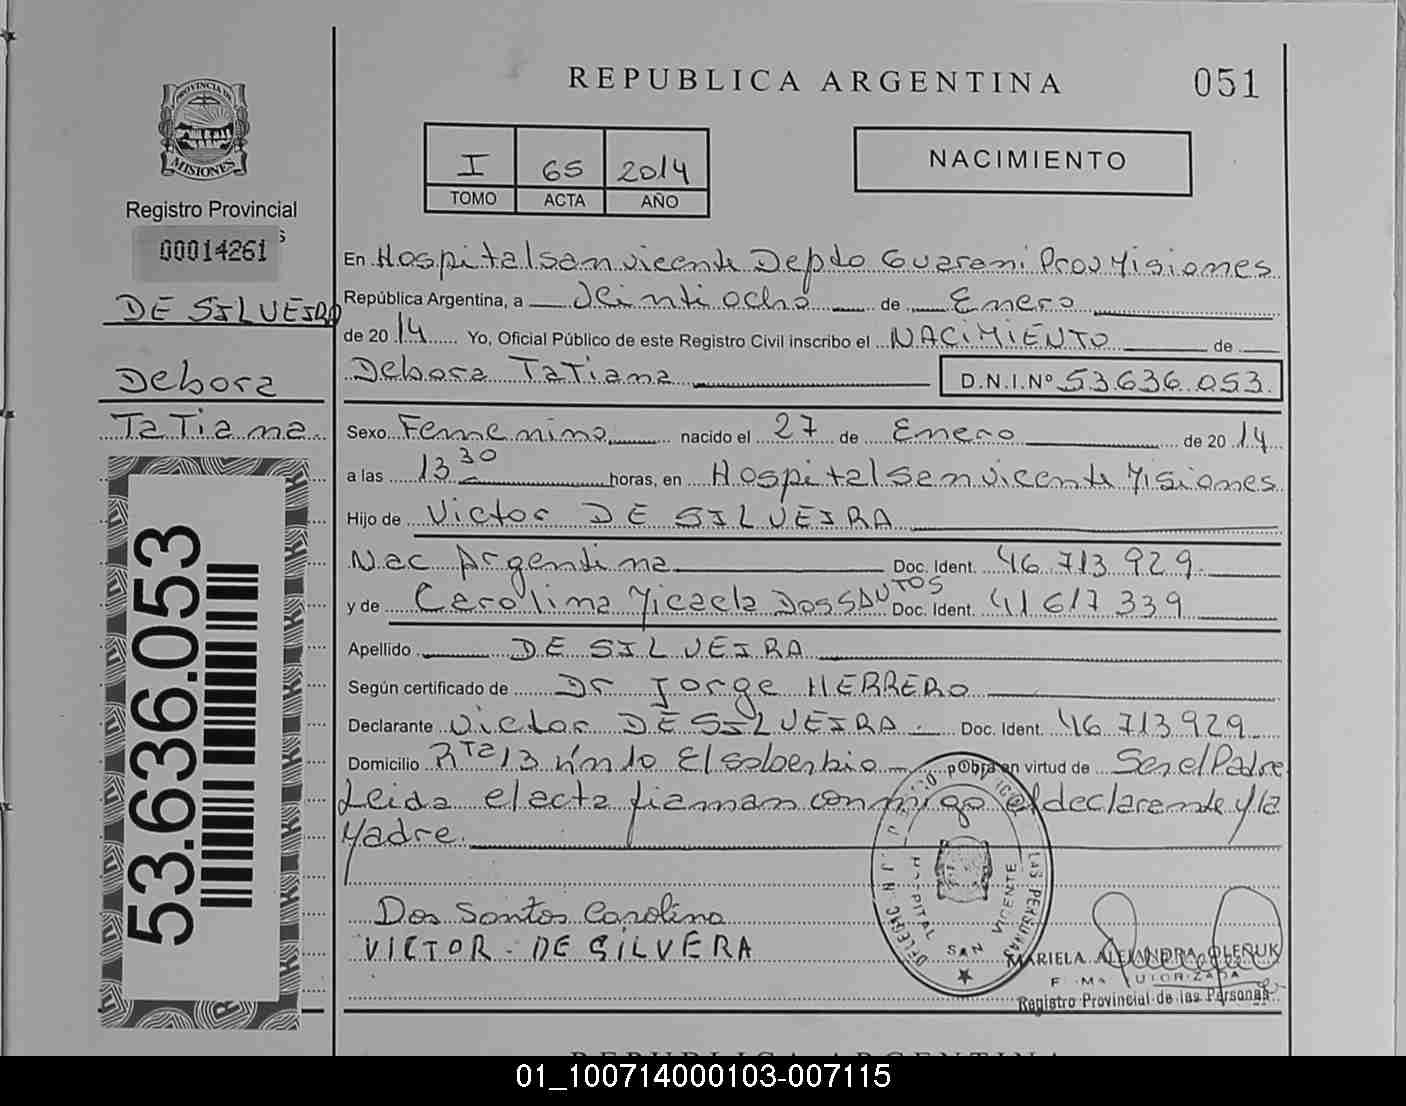 REPUBLICA ARGENTINA
051
PROVINCIA DE
MISIONES
Registro Provincial
00014261
I 65 2014
TOMO ACTA AÑO
NACIMIENTO
DE SILVEIRA
Debora
Tatiana
53.636.053
En Hospital san vicente Depto Guarani Prov Misiones
República Argentina, a Veinti ocho de Enero
de 2014 Yo, Oficial Público de este Registro Civil inscribo el NACIMIENTO de
Debora Tatiana D.N.I.Nº 53.636.053
Sexo Femenino nacido el 27 de Enero de 2014
a las 13 30 horas, en Hospital san vicente Misiones
Hijo de Victor DE SILVEIRA
Nac Argentina Doc. Ident. 46 713 929
y de Carolina Micaela Dos SANTOS Doc. Ident. 41 617 339
Apellido DE SILVEIRA
Según certificado de Dr Jorge HERRERO
Declarante Victor DE SILVEIRA Doc. Ident. 46 713 929
Domicilio Rta 13 El soberbio obra en virtud de Ser el Padre
Leida el acta firman conmigo el declarante y la
Madre.
Dos Santos Carolina
VICTOR - DE SILVERA
HOSPITAL SAN VICENTE
MARIELA ALEJANDRA OLEÑUK
FIRMA AUTORIZADA
Registro Provincial de las Personas
REPUBLICA ARGENTINA
01_100714000103-007115